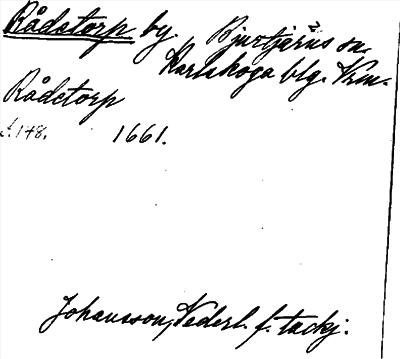 Rådetorp by. Bjurtjärns sn.
Karlskoga blg. Vrm.
Rådetorp
s. 178. 1661.
Johansson, Vederl. f. tackj.